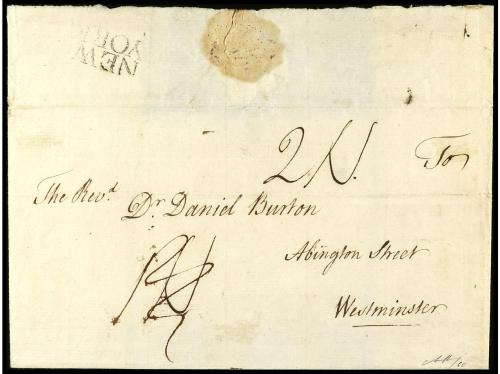 NEW
YORK
2N. To
The Rev.d Dr Daniel Burton
Abington Street
Westminster